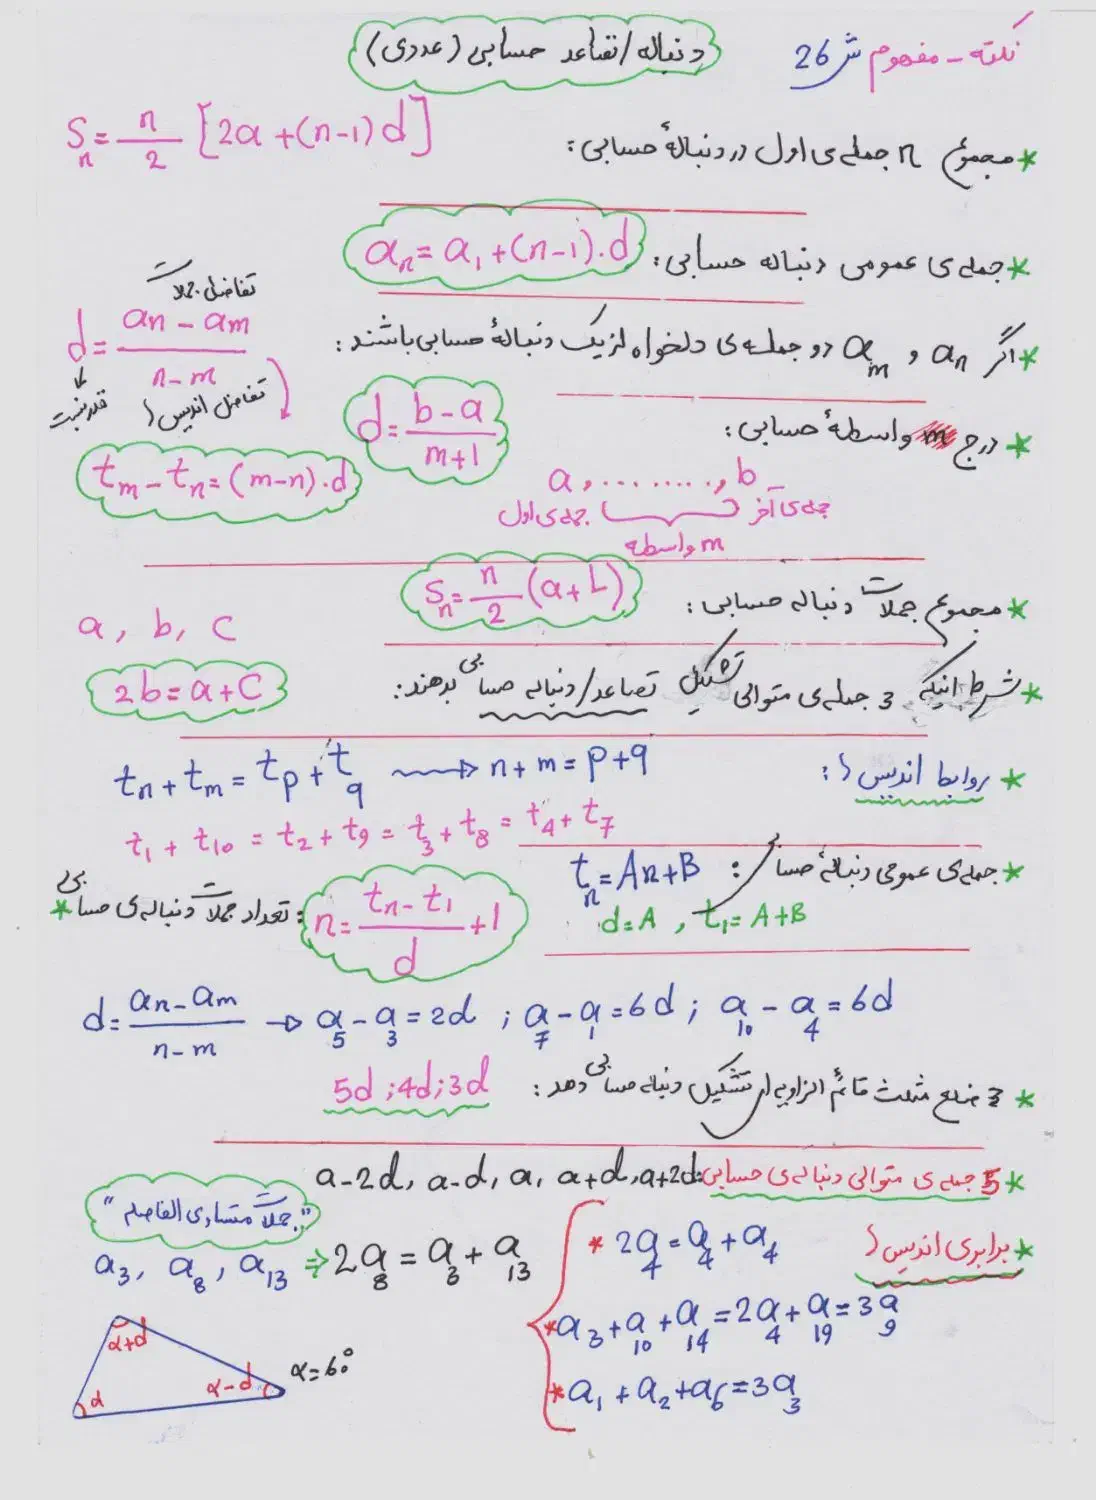 نکته - مفهوم ش 26
دنباله/تصاعد حسابی (عددی)
* مجموع n جمله‌ی اول در دنبالهٔ حسابی:
Sₙ = n/2 [2a + (n-1)d]
* جمله‌ی عمومی دنباله حسابی: aₙ = a₁ + (n-1).d
* اگر aₙ و aₘ دو جمله‌ی دلخواه از یک دنبالهٔ حسابی باشند:
تفاضل جملات
d = (an - am)/(n - m)
قدرنسبت
تفاضل اندیس‌ها
tₘ - tₙ = (m-n).d
* درج m واسطهٔ حسابی:
d = (b - a)/(m+1)
a, ........, b
جمله‌ی اول جمله‌ی آخر
m واسطه
* مجموع جملات دنباله حسابی: Sₙ = n/2 (a + L)
* شرط اینکه 3 جمله‌ی متوالی تشکیل تصاعد/دنباله حسابی بدهند:
a, b, c
2b = a + C
* روابط اندیس‌ها:
tₙ + tₘ = tₚ + t_q → n + m = p + q
t₁ + t₁₀ = t₂ + t₉ = t₃ + t₈ = t₄ + t₇
* جمله‌ی عمومی دنبالهٔ حسابی: tₙ = An + B
d = A , t₁ = A + B
* تعداد جملات دنباله‌ی حسابی: n = (tₙ - t₁)/d + 1
d = (an - am)/(n - m) → a₅ - a₃ = 2d ; a₇ - a₁ = 6d ; a₁₀ - a₄ = 6d
* 3 ضلع مثلث قائم الزاویه ای تشکیل دنباله حسابی دهد: 5d ; 4d ; 3d
* 5 جمله‌ی متوالی دنباله‌ی حسابی: a-2d, a-d, a, a+d, a+2d
"جملات متساوی الفاصله"
a₃, a₈, a₁₃ ⇒ 2a₈ = a₃ + a₁₃
* برابری اندیس‌ها
* 2a₄ = a₄ + a₄
* a₃ + a₁₀ + a₁₄ = 2a₄ + a₁₉ = 3a₉
* a₁ + a₂ + a₆ = 3a₃
α+d
α
α-d
α = 60°